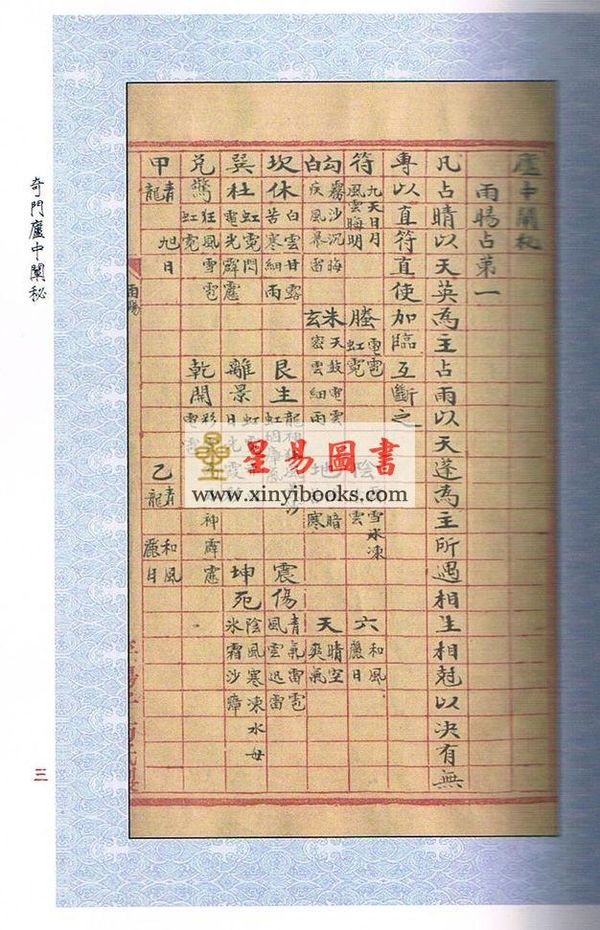 廬中闡秘
雨暘占第一
凡占晴以天英為主占雨以天蓬為主所遇相生相尅以決有無
專以直符直使加臨互斷之
符 九天日月 風雲晦明
螣 電雹 虹霓
陰 雪冰凍 雲
六 和風 麗日
勾 霧沙沉晦
白 疾風暴雷
朱 天鼓電雲
玄 密雲細雨
地 暗 寒
天 晴空 爽氣
坎休 白雲甘露 苦寒細雨
艮生
震傷 青氣雷雹 風雲迅雷
巽杜 虹霓閃 電光霹靂
離景
坤死 陰風寒凍水母 氷霜沙瘴
兌驚 狂風雪雹 虹霓
乾開 神霹靂
甲 青龍 旭日
乙 青龍 和風 麗日
雨暘
奇門廬中闡秘
三
星易圖書
www.xinyibooks.com